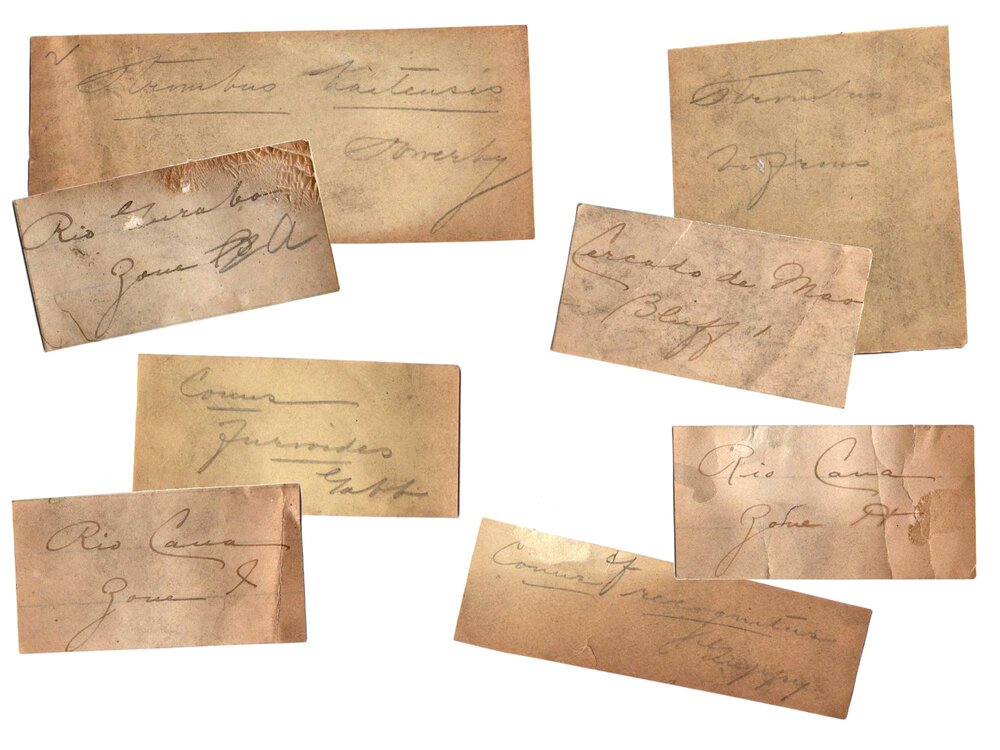 Strombus Haitensis
Sowerby
Rio Gurabo
Zone A
Strombus
Cercado de Mao
Bluff 1
Conus
Furvoides
Gabb
Rio Cana
Zone I
Rio Cana
Zone H
Conus recognitus
Guppy